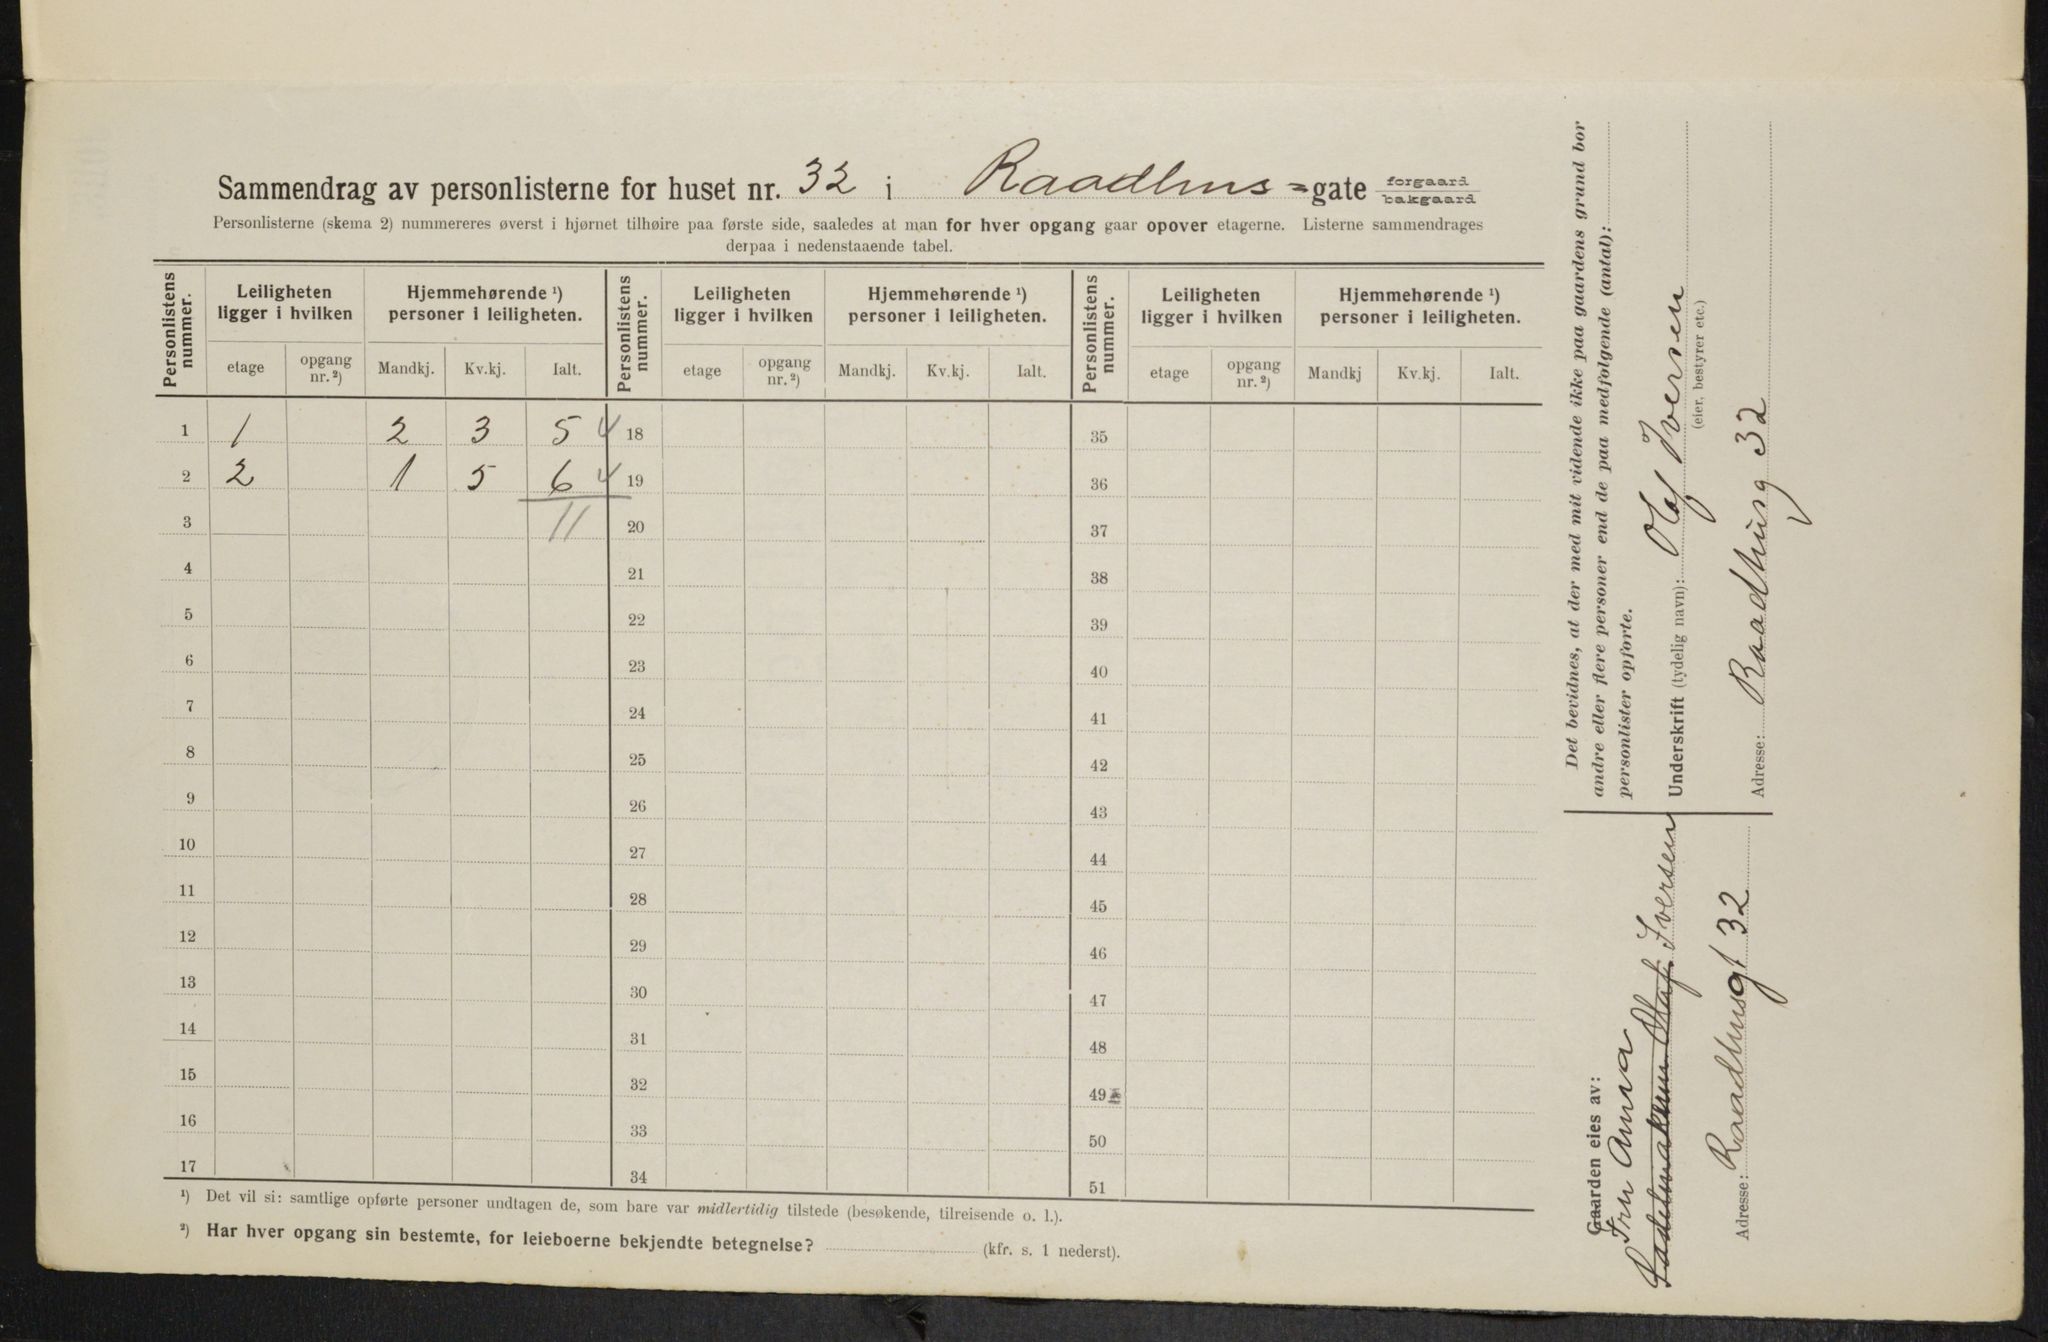 Sammendrag av personlisterne for huset nr. 32 i Raadhus=gate forgaard bakgaard
Personlisterne (skema 2) nummereres øverst i hjørnet tilhøire paa første side, saaledes at man for hver opgang gaar opover etagerne. Listerne sammendrages
derpaa i nedenstaaende tabel.
Personlistens nummer. Leiligheten ligger i hvilken Hjemmehørende ¹) personer i leiligheten. Personlistens nummer. Leiligheten ligger i hvilken Hjemmehørende ¹) personer i leiligheten. Personlistens nummer. Leiligheten ligger i hvilken Hjemmehørende ¹) personer i leiligheten.
etage opgang nr. ²) Mandkj. Kv.kj. Ialt. etage opgang nr. ²) Mandkj. Kv.kj. Ialt. etage opgang nr. ²) Mandkj Kv.kj. Ialt.
1 1 2 3 5 4 18 35
2 2 1 5 6 4 19 36
3 11 20 37
4 21 38
5 22 39
6 23 40
7 24 41
8 25 42
9 26 43
10 27 44
11 28 45
12 29 46
13 30 47
14 31 48
15 32 49
16 33 50
17 34 51
¹) Det vil si: samtlige opførte personer undtagen de, som bare var midlertidig tilstede (besøkende, tilreisende o. l.).
²) Har hver opgang sin bestemte, for leieboerne bekjendte betegnelse? (kfr. s. 1 nederst).
Det bevidnes, at der med mit vidende ikke paa gaardens grund bor
andre eller flere personer end de paa medfølgende (antal):
personlister opførte.
Underskrift (tydelig navn): Olaf Iversen
(eier, bestyrer etc.)
Adresse: Raadhusg 32
Gaarden eies av:
Fru Anna
Olaf Iversen
Adresse: Raadhusgt 32